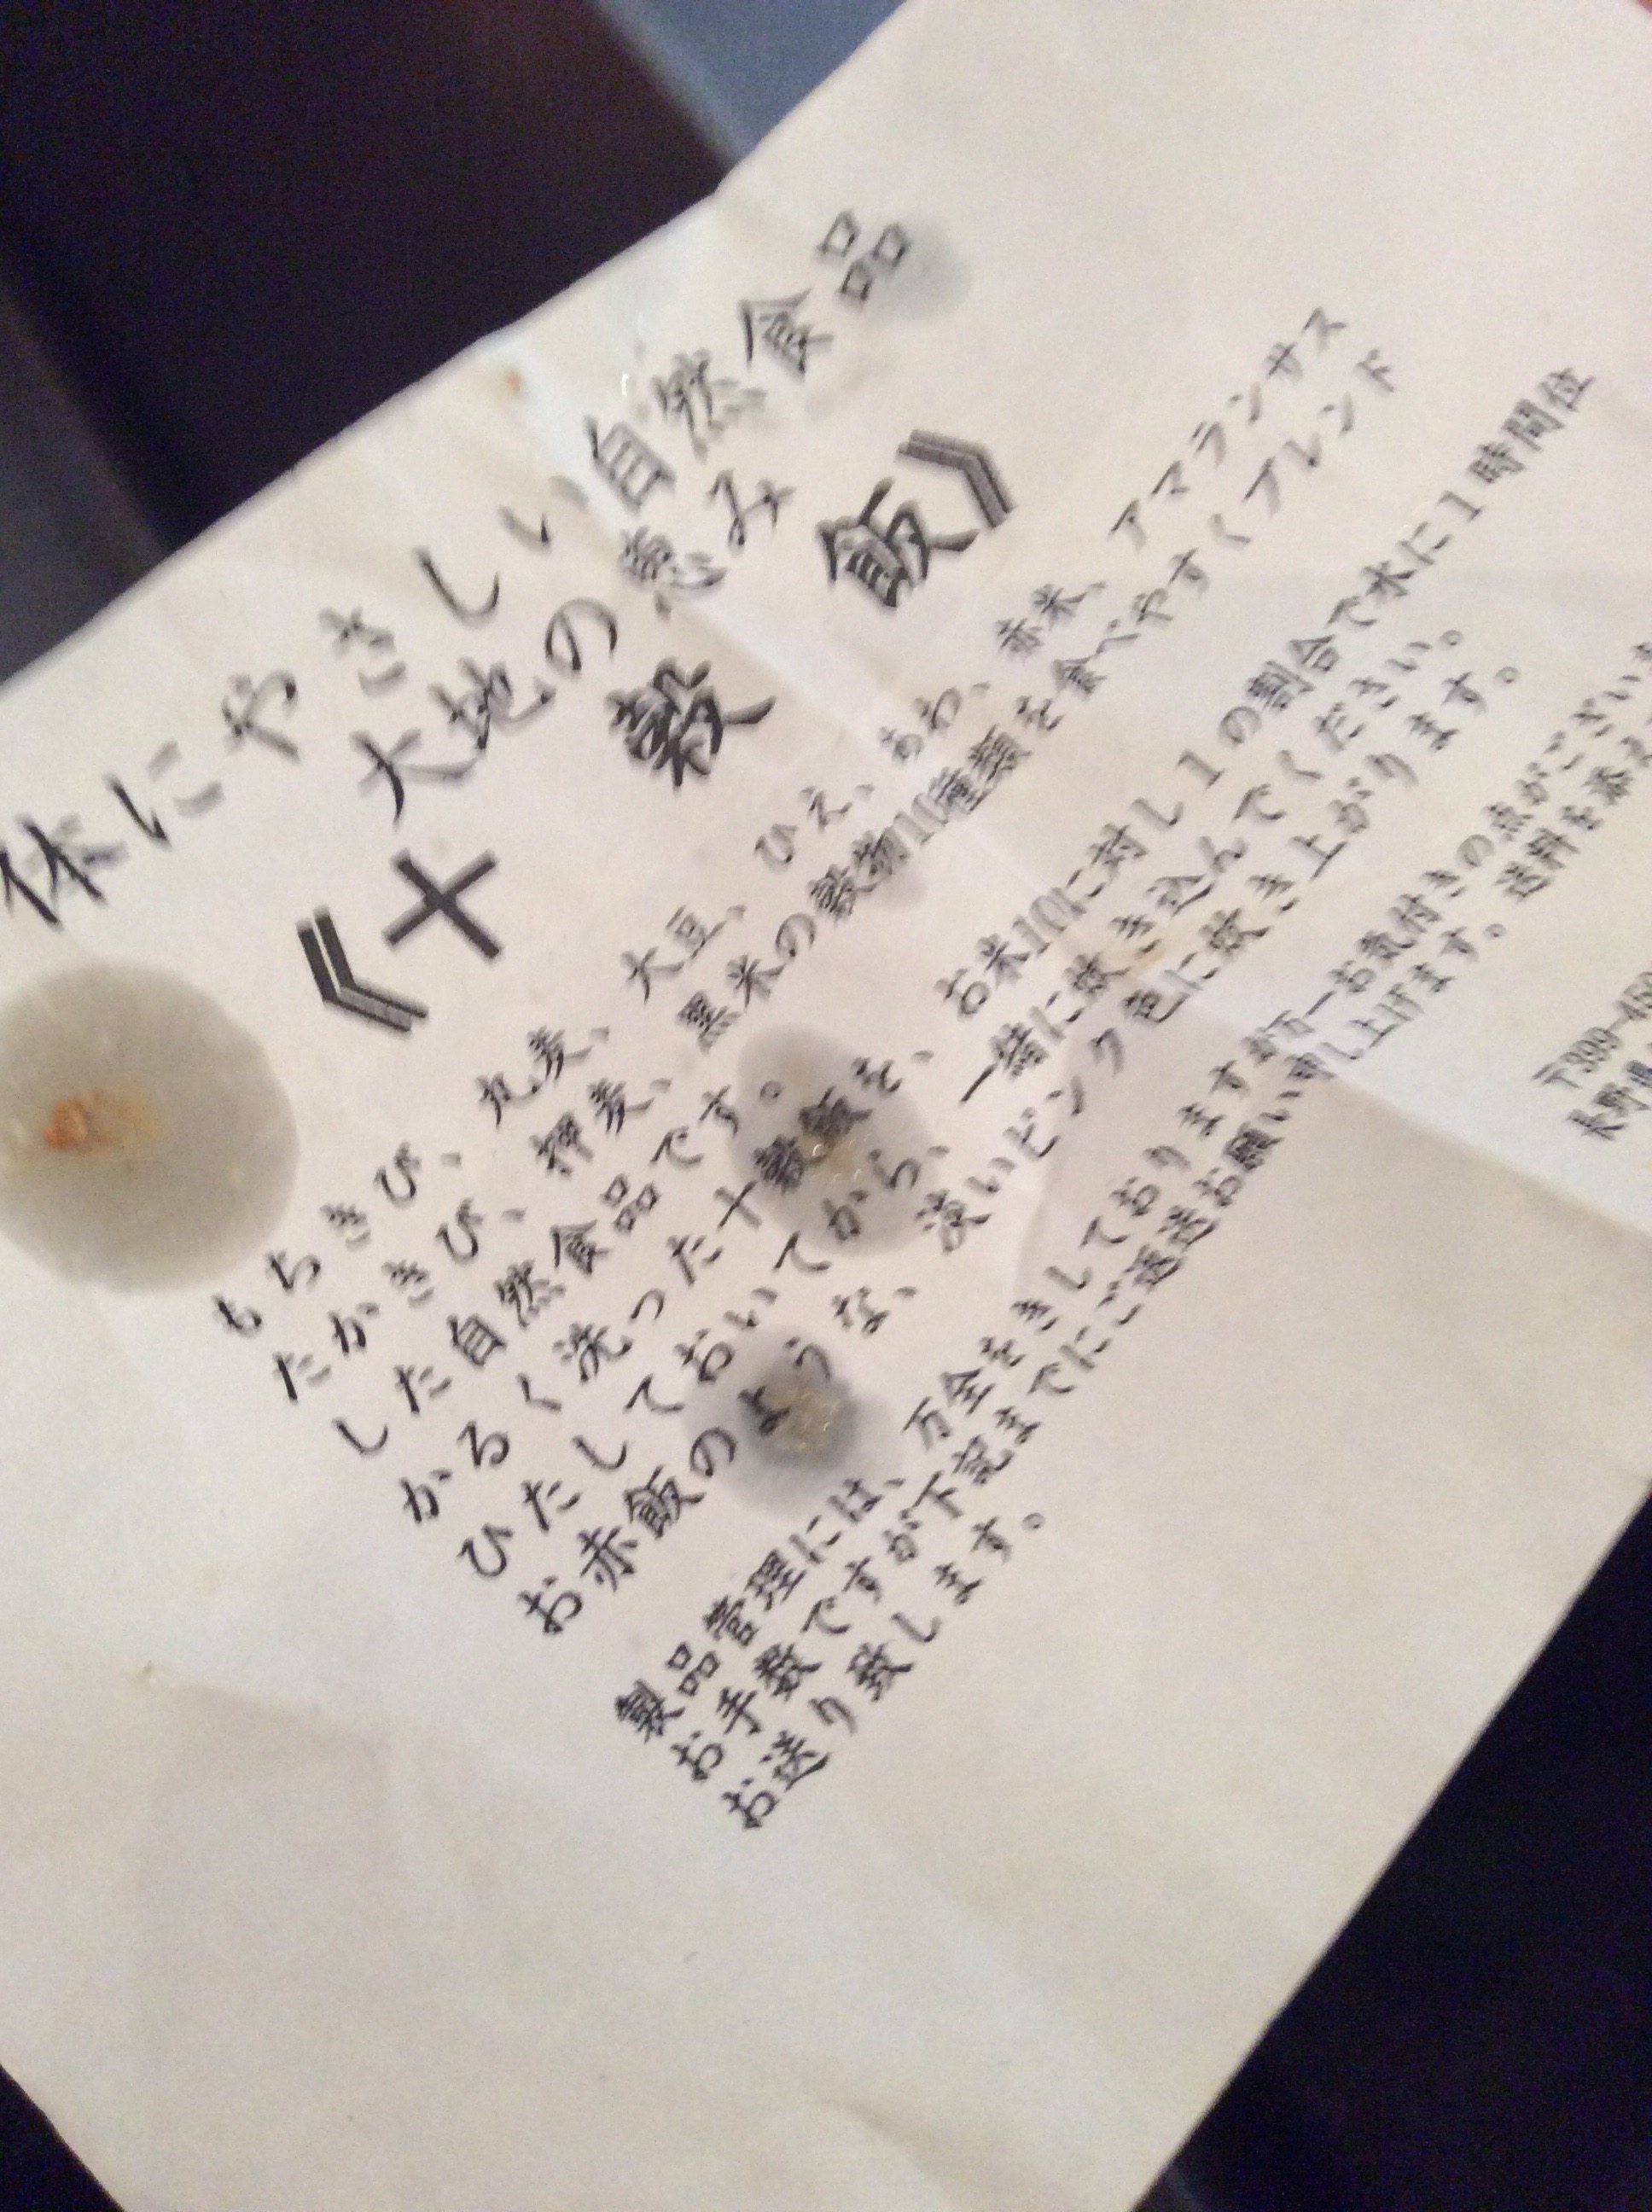 体にやさしい自然食品
大地の恵み
《十 穀 飯》
もちきび、丸麦、大豆、ひえ、あわ、赤米、アマランサス
たかきび、押麦、黒米の穀物10種類を食べやすくブレンド
した自然食品です。
かるく洗った十穀飯を、お米10に対し1の割合で水に1時間位
ひたしておいてから、一緒に炊き込んでください。
お赤飯のような、淡いピンク色に炊き上がります。
製品管理には、万全をきしておりますが万一お気付きの点がございま
お手数ですが下記までにご返送お願い申し上げます。送料を添え
お送り致します。
〒399-450
長野県